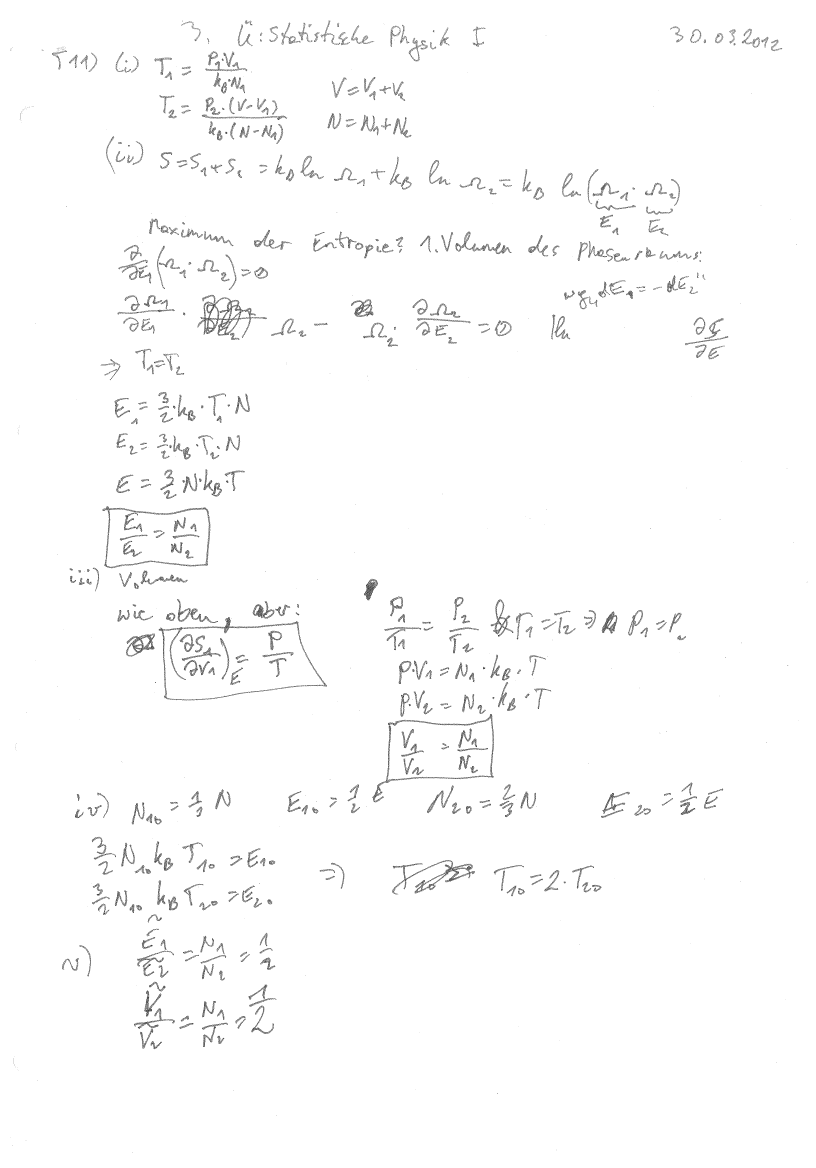 3. Ü: Statistische Physik I 30.03.2012
T11) (i) T₁ = P₁·V₁/(k_B·N₁)
V = V₁+V₂
T₂ = P₂·(V-V₁)/(k_B·(N-N₁))
N = N₁+N₂
(ii) S = S₁+S₂ = k_B ln Ω₁ + k_B ln Ω₂ = k_B ln(Ω₁·Ω₂)
E₁ E₂
Maximum der Entropie? 1. Volumen des Phasenraums:
∂/∂E₁ (Ω₁·Ω₂) = 0
wg „dE₁ = -dE₂"
∂Ω₁/∂E₁ · Ω₂ - Ω₂· ∂Ω₂/∂E₂ = 0
⇒ T₁=T₂
E₁ = 3/2·k_B·T₁·N
E₂ = 3/2·k_B·T₂·N
E = 3/2·N·k_B·T
E₁/E₂ = N₁/N₂
iii) Volumen
wie oben, aber:
(∂S₁/∂V₁)_E = P/T
P₁/T₁ = P₂/T₂ & T₁=T₂ ⇒ P₁=P₂
p·V₁ = N₁·k_B·T
p·V₂ = N₂·k_B·T
V₁/V₂ = N₁/N₂
iv) N₁₀ = 1/3 N E₁₀ = 1/2 E N₂₀ = 2/3 N E₂₀ = 1/2 E
3/2 N₁₀ k_B T₁₀ = E₁₀
⇒ T₁₀ = 2·T₂₀
3/2 N₁₀ k_B T₂₀ = E₂₀
v) Ẽ₁/Ẽ₂ = N₁/N₂ = 1/2
Ṽ₁/Ṽ₂ = N₁/N₂ = 1/2